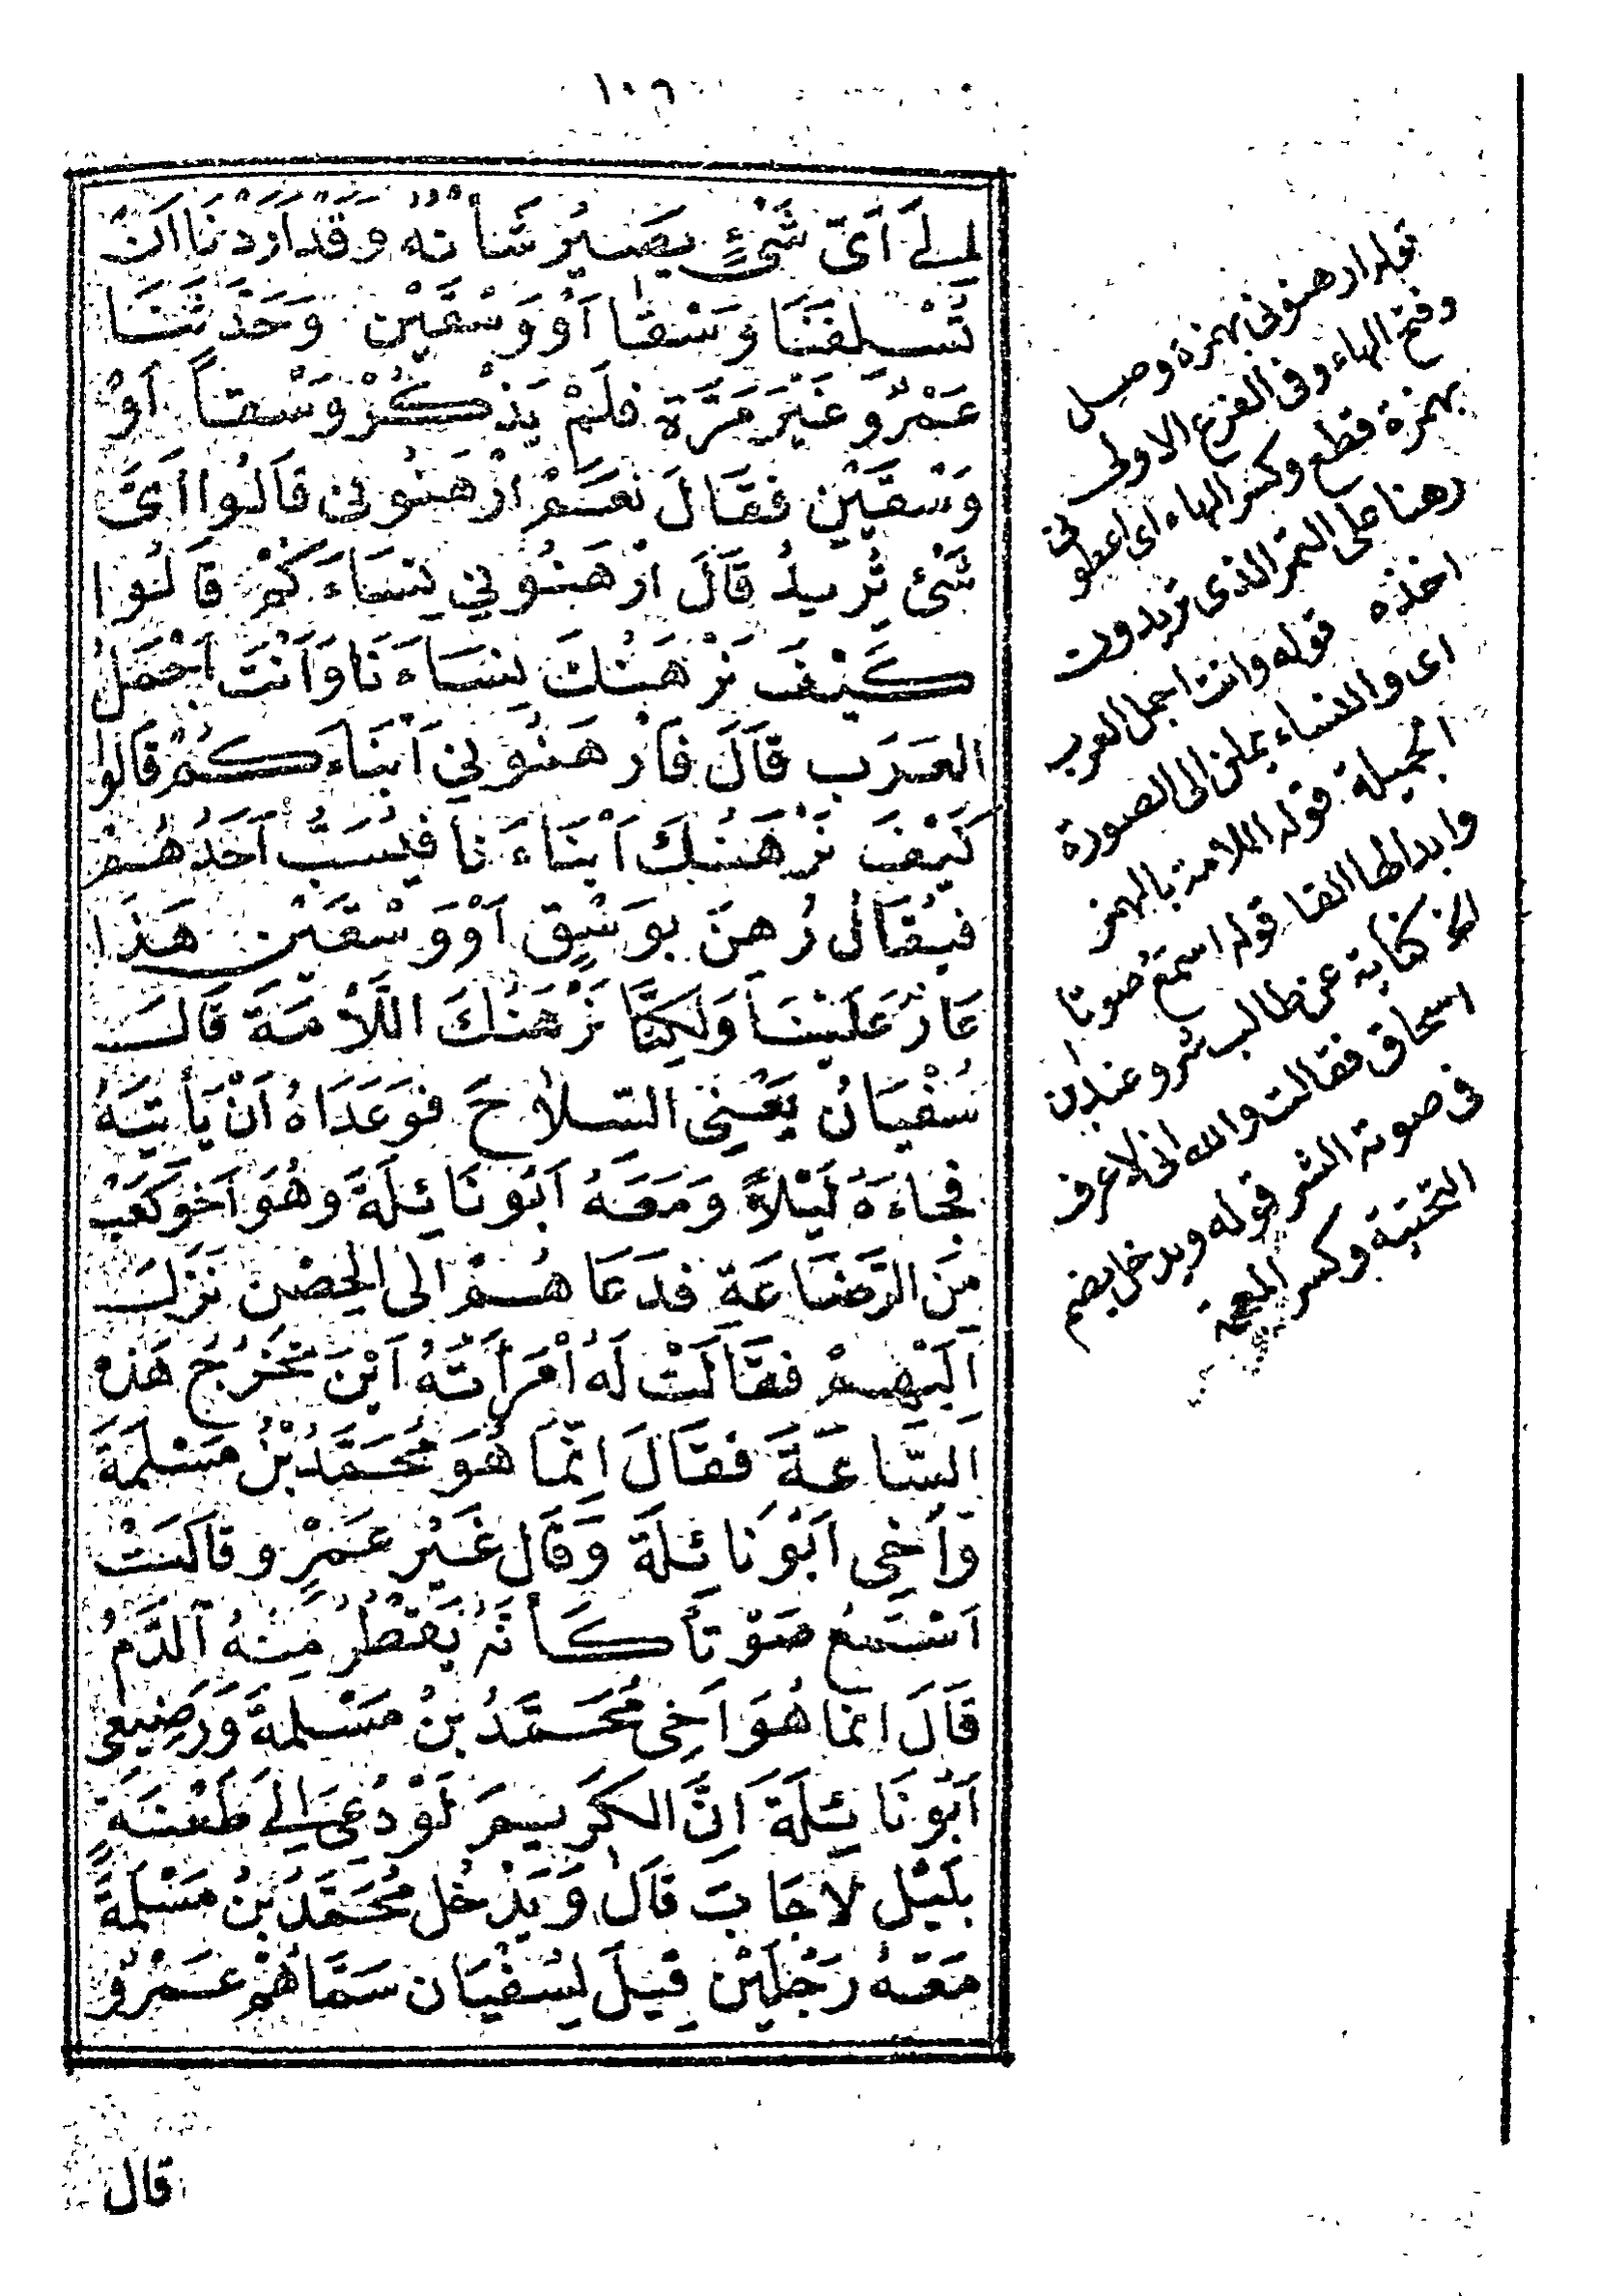 ١٠٦
اِلَے اَىِّ شَىْءٍ يَصِيرُ شَأْنُهُ وَقَدْ اَرَدْنَا اَنْ
تُسْلِفَنَا وَسْقًا اَوْ وَسْقَيْنِ وَحَدَّثَنَا
عَمْرٌو غَيْرَ مَرَّةٍ فَلَمْ يَذْكُرْ وَسْقاً اَوْ
وَسْقَيْنِ فَقَالَ نَعَمْ ارْهَنُونِى قَالُوا اَىَّ
شَىْءٍ تُرِيدُ قَالَ ارْهَنُونِي نِسَاءَكُمْ قَالُوا
كَيْفَ نَرْهَنُكَ نِسَاءَنَا وَاَنْتَ اَجْمَلُ
العَرَبِ قَالَ فَارْهَنُونِي اَبْنَاءَكُمْ قَالُوا
كَيْفَ نَرْهَنُكَ اَبْنَاءَنَا فَيُسَبُّ اَحَدُهُمْ
فَيُقَالُ رُهِنَ بِوَسْقٍ اَوْ وَسْقَيْنِ هَذَا
عَارٌ عَلَيْنَا وَلَكِنَّا نَرْهَنُكَ اللَّأْمَةَ قَالَ
سُفْيَانُ يَعْنِى السِّلاَحَ فَوَعَدَاهُ اَنْ يَأْتِيَهُ
فَجَاءَهُ لَيْلاً وَمَعَهُ اَبُو نَائِلَةَ وَهُوَ اَخُو كَعْبٍ
مِنَ الرَّضَاعَةِ فَدَعَاهُمْ الى الحِصْنِ نَزَلَ
اَلَيْهِمْ فَقَالَتْ لَهُ اُمْرَأَتُهُ اَيْنَ تَخْرُجُ هَذِهِ
اَلسَّاعَةَ فَقَالَ اِنَّمَا هُوَ مُحَمَّدُ بْنُ مَسْلَمَةَ
وَاَخِى اَبُو نَائِلَةَ وَقَال غَيْرُ عَمْرٍ و قَالَتْ
اَسْمَعُ صَوْتاً كَأَنَّهُ يَقْطُرُ مِنْهُ اَلدَّمُ
قَالَ اِنَّمَا هُوَ اَخِى مُحَمَّدُ بْنُ مَسْلَمَةَ وَرَضِيعِى
اَبُو نَائِلَةَ اِنَّ الكَرِيمَ لَوْ دُعِىَ اِلَے طَعْنَةٍ
بِلَيْلٍ لَاَجَابَ قَالَ وَيُدْخُل مُحَمَّدُ بْنُ مَسْلَمَةَ
مَعَهُ رَجُلَيْنِ قِيلَ لِسُفْيَان سَمَّاهُمْ عَمْرٌو
قوله ارهنونى بهمزة وصل
وفتح الهاء وفى الفرع الاولى
بهمزة قطع وكسر الهاء اى اعطونى
رهنا على التمر الذى تريدون
اخذه قوله وانت اجمل العرب
اى والنساء يملن الى الصورة
الجميلة قوله اللامة بالهمز
وابدالها الفا قوله اسمع صوتا
الخ كناية عن طالب شر وعند ابن
اسحاق فقالت والله انى لاعرف
فى صوته الشر قوله ويدخل بضم
التحتية وكسر المعجمة
قال